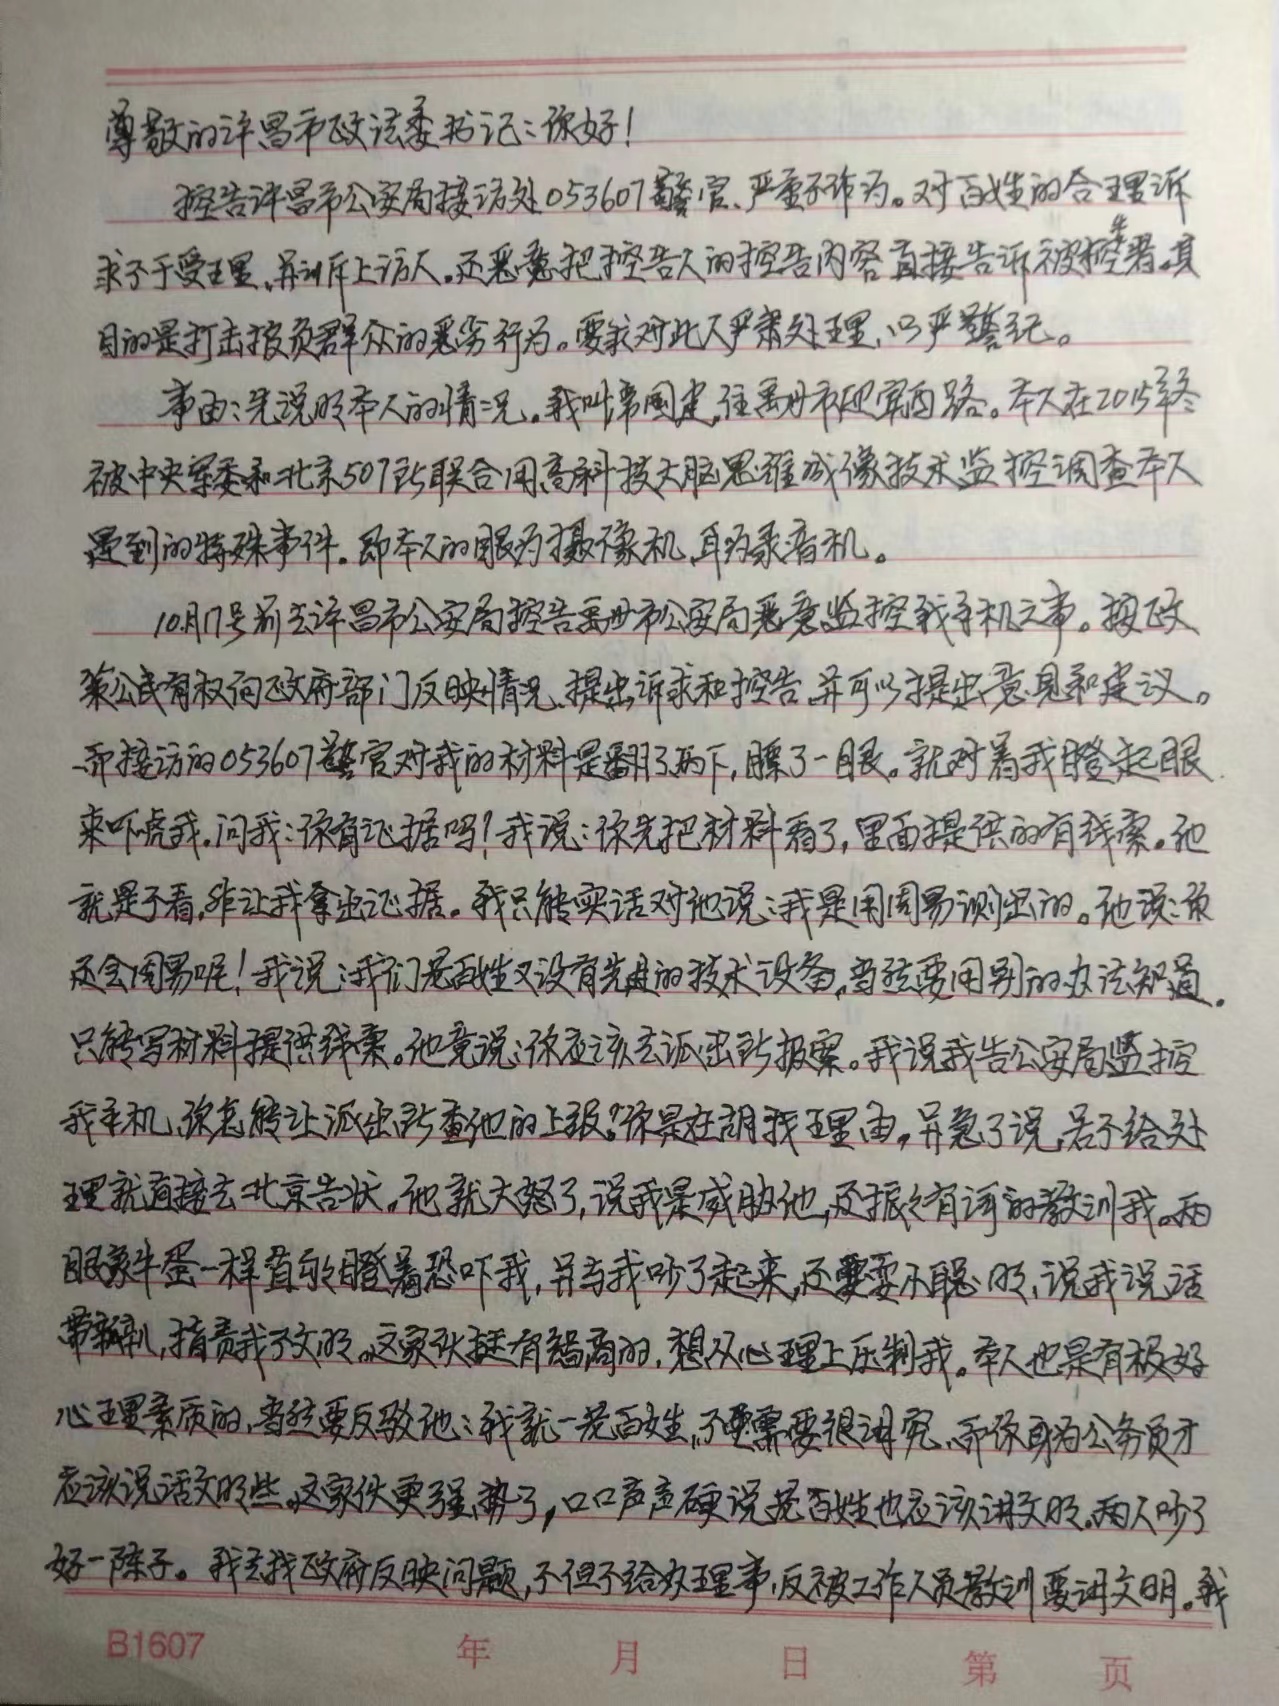 尊敬的许昌市政法委书记：你好！
控告许昌市公安局接访处053607警官、严重不作为。对百姓的合理诉
求不于受理、并训斥上访人。还恶意把控告人的控告内容直接告诉被控告者。其
目的是打击报负群众的恶劣行为。要求对此人严肃处理、以严警纪。
事由：先说明本人的情况。我叫常国建，住禹州市画圣西路。本人在2015年终
被中央军委和北京507所联合用高科技大脑思维成像技术监控调查本人
遇到的特殊事件。即本人的眼为摄像机、耳为录音机。
10月17号前去许昌市公安局控告禹州市公安局恶意监控我手机之事。按政
策公民有权向政府部门反映情况、提出诉求和控告、并可以提出意见和建议。
而接访的053607警官对我的材料是翻了两下，瞟了一眼。就对着我瞪起眼
来吓虎我。问我：你有证据吗！我说：你先把材料看了，里面提供的有线索。他
就是不看，非让我拿出证据。我只能实话对他说：我是用周易测出的。他说：你
还会周易呢！我说：我们老百姓又没有先进的技术设备，当然要用别的办法知道。
只能写材料提供线索。他竟说：你应该去派出所报案。我说我告公安局监控
我手机、你怎能让派出所查他的上级？你是在胡找理由，并急了说，若不给处
理就直接去北京告状。他就大怒了，说我是威胁他，还振振有词的教训我。两
眼象牛蛋一样直勾勾瞪着恐吓我，并与我吵了起来，还要耍小聪明，说我说话
带 ，指责我不文明。这家伙挺有智商的，想从心理上压制我。本人也是有极好
心理素质的，当然要反驳他：我就一老百姓，不需要很讲究、而你身为公务员才
应该说话文明些。这家伙更强势了，口口声声硬说老百姓也应该讲文明。两人吵了
好一阵子。我去找政府反映问题，不但不给办理事，反被工作人员教训要讲文明。我
B1607 年 月 日 第 页